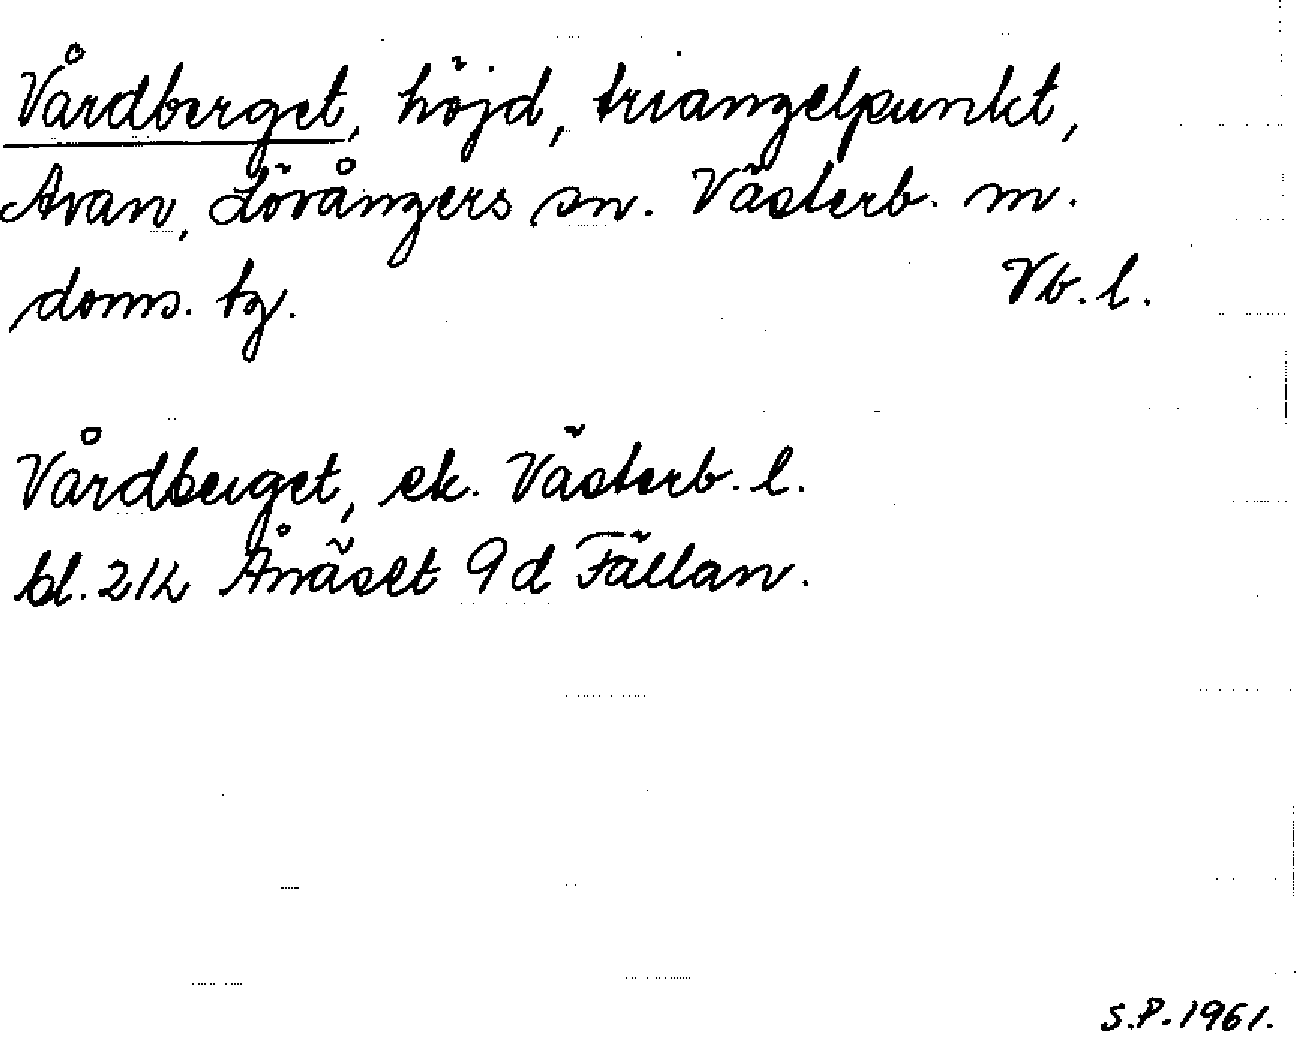 Vårdberget, höjd, triangelpunkt,
Avan, Lövångers sn. Västerb. m.
doms. tg. Vb. l.
Vårdberget, ek. Västerb. l.
bl. 21L Ånäset 9d Fällan.
S.P. 1961.